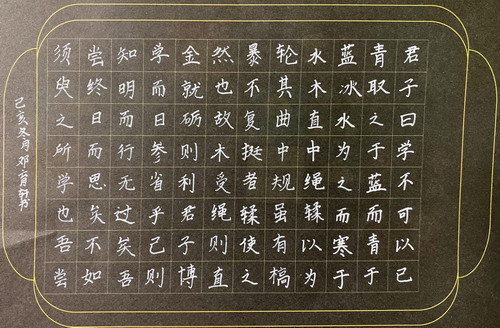 君子曰学不可以已
青取之于蓝而青于
蓝冰水为之而寒于
水木直中绳輮以为
轮其曲中规虽有槁
暴不复挺者輮使之
然也故木受绳则直
金就砺则利君子博
学而日参省乎己则
知明而行无过矣吾
尝终日而思矣不如
须臾之所学也吾尝
己亥冬月邓育轩书